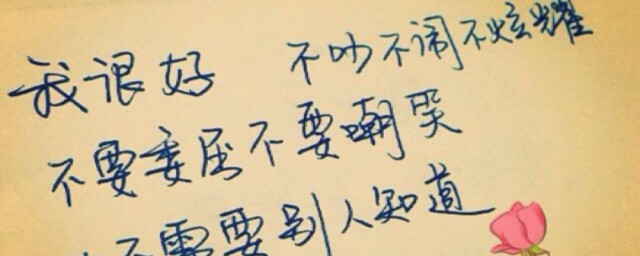 我很好 不吵不闹不炫耀
不要委屈不要嘲笑
不需要别人知道